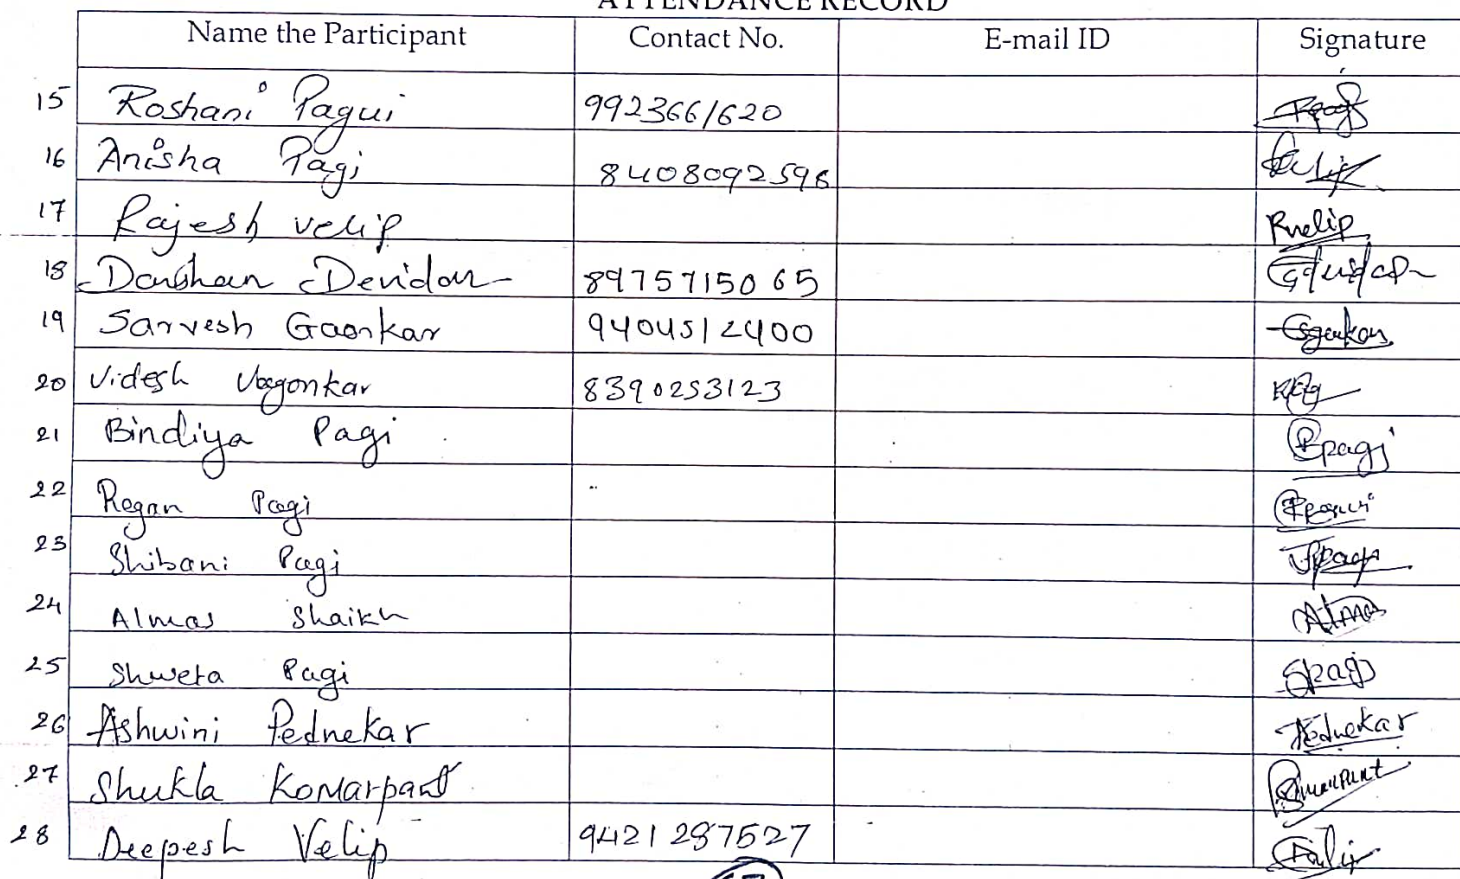 ATTENDANCE RECORD
Name the Participant Contact No. E-mail ID Signature
15 Roshani Pagui 9923661620
16 Anisha Pagi 8408092598
17 Rajesh velip Rvelip
18 Darshan Devidas 8975715065
19 Sarvesh Gaonkar 9404512400
20 Videsh 8390253123
21 Bindiya Pagi Bpagi
22 Rogan Pagi
23 Shibani Pagi
24 Almas Shaikh Almas
25 Shweta Pagi Spagi
26 Ashwini Pednekar Pednekar
27 Shukla Komarpant
28 Deepesh Velip 9421287527
17